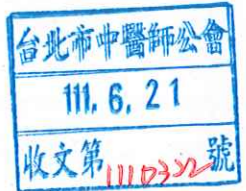 台北市中醫師公會
111. 6. 21
收文第1110322號